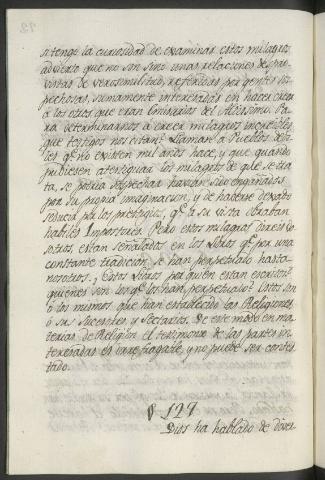 si tengo la curiosidad de examinar estos milagros
advierto que no son sino unas relaciones despro-
vistas de verosimilitud, referidas por gentes sos-
pechosas, sumamente interesadas en hacer creer
a los otros que eran Comisarios del Altissimo. Pa-
ra determinarnos à creer milagros increibles,
que testigos nos citan? Llaman à Pueblos debi-
les qe. no existen mil años hace, y que quando
pudiesen atestiguar los milagros de que se tra-
ta, se podria sospechar haver sido engañados
por su propia imaginacion, y de haberse dexado
seducir por los prestigios, qe. à su vista obraban
habiles Impostores. Pero estos milagros direis vo-
sotros, estan señalados en los libros qe. por una
constante tradicion se han perpetuado hasta
nosotros. Y estos Libros por quien estan escritos?
quienes son los qe. los han perpetuado? Estos son
ò los mismos que han establecido las Religiones
ò sus Sucesores y Sectarios. De este modo en ma-
terias de Religion el testimonio de las partes in-
teresadas es irrefragable, y no puede ser contes-
tado.
§ 129
Dios ha hablado de diver-